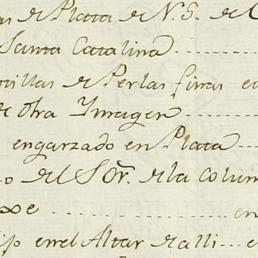 as de Plata de N. S. de C
Santa Catalina
illas de Perlas finas en
e otra Ymagen
engarzado en Plata
o del Sõr. de la colum
en
en el Altar de alli